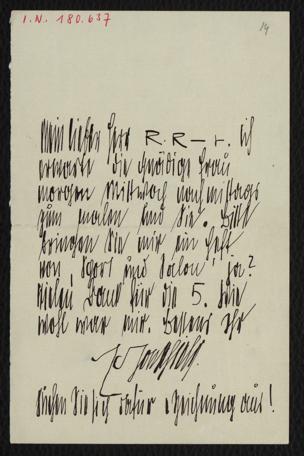 I.N. 180.637
14
Mein lieber Herr R.R-r. Ich
erwarte die gnädige Frau
morgen Mittwoch nachmittags
zum malen und Sie. Bitte
bringen Sie mir ein Heft
von „Sport und Salon", ja?
Vielen Dank für die 5. Wie
wohl war mir. Bestens Ihr
Suchen Sie sich dafür Zeichnung aus!